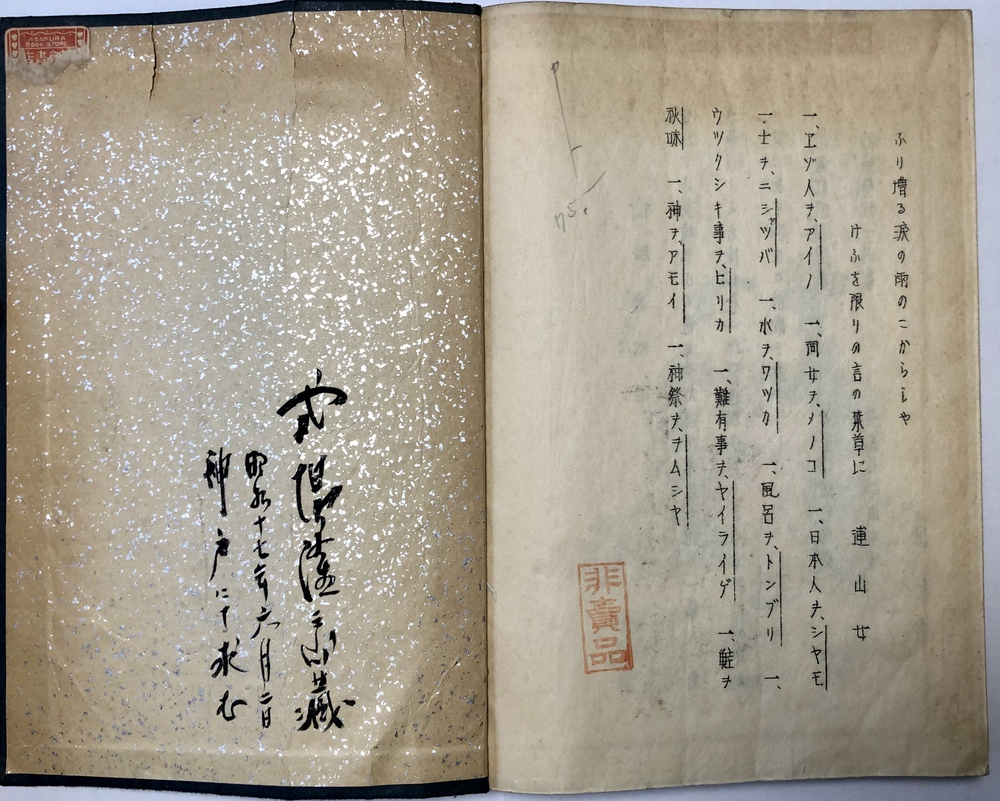 ふり増る涙の雨のこからしや
けふを限りの言の葉草に　連山女
一、ヱゾ人ヲ、アイノ　一、同女ヲ、メノコ　一、日本人ヲ、シヤモ
一、士ヲ、ニシツパ　一、水ヲ、ワツカ　一、風呂ヲ、トンブリ　一、
ウツクシキ事ヲ、ヒリカ　一、難有事ヲ、ヤイライゲ　一、鮭ヲ
秋味　一、神ヲ、アモイ　一、神祭ヲ、ヲムシヤ
非賣品
昭和十七年六月二日
神戸にて求む
ASAKURA
BOOK STORE
75.